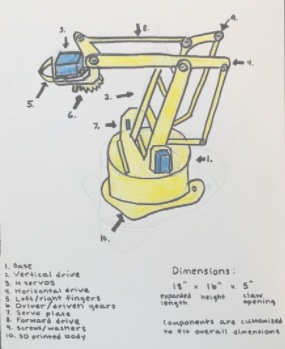 3.
8.
9.
4.
5.
6.
2.
7.
1.
10.
1. Base
2. Vertical drive
3. 4 servos
4. Horizontal drive
5. Left/right fingers
6. Driver/driven gears
7. Servo plate
8. Forward drive
9. Screws/washers
10. 3D printed body
Dimensions:
18" x 16" x 5"
expanded length
height
claw opening
Components are customized
to fit overall dimensions